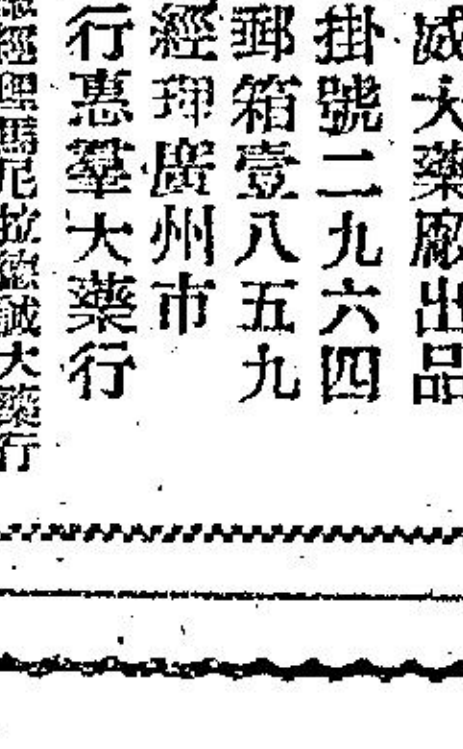 威大藥廠出品
掛號二九六四
郵箱壹八五九
經理廣州市
行惠羣大藥行
經理馬尼拉德誠大藥行